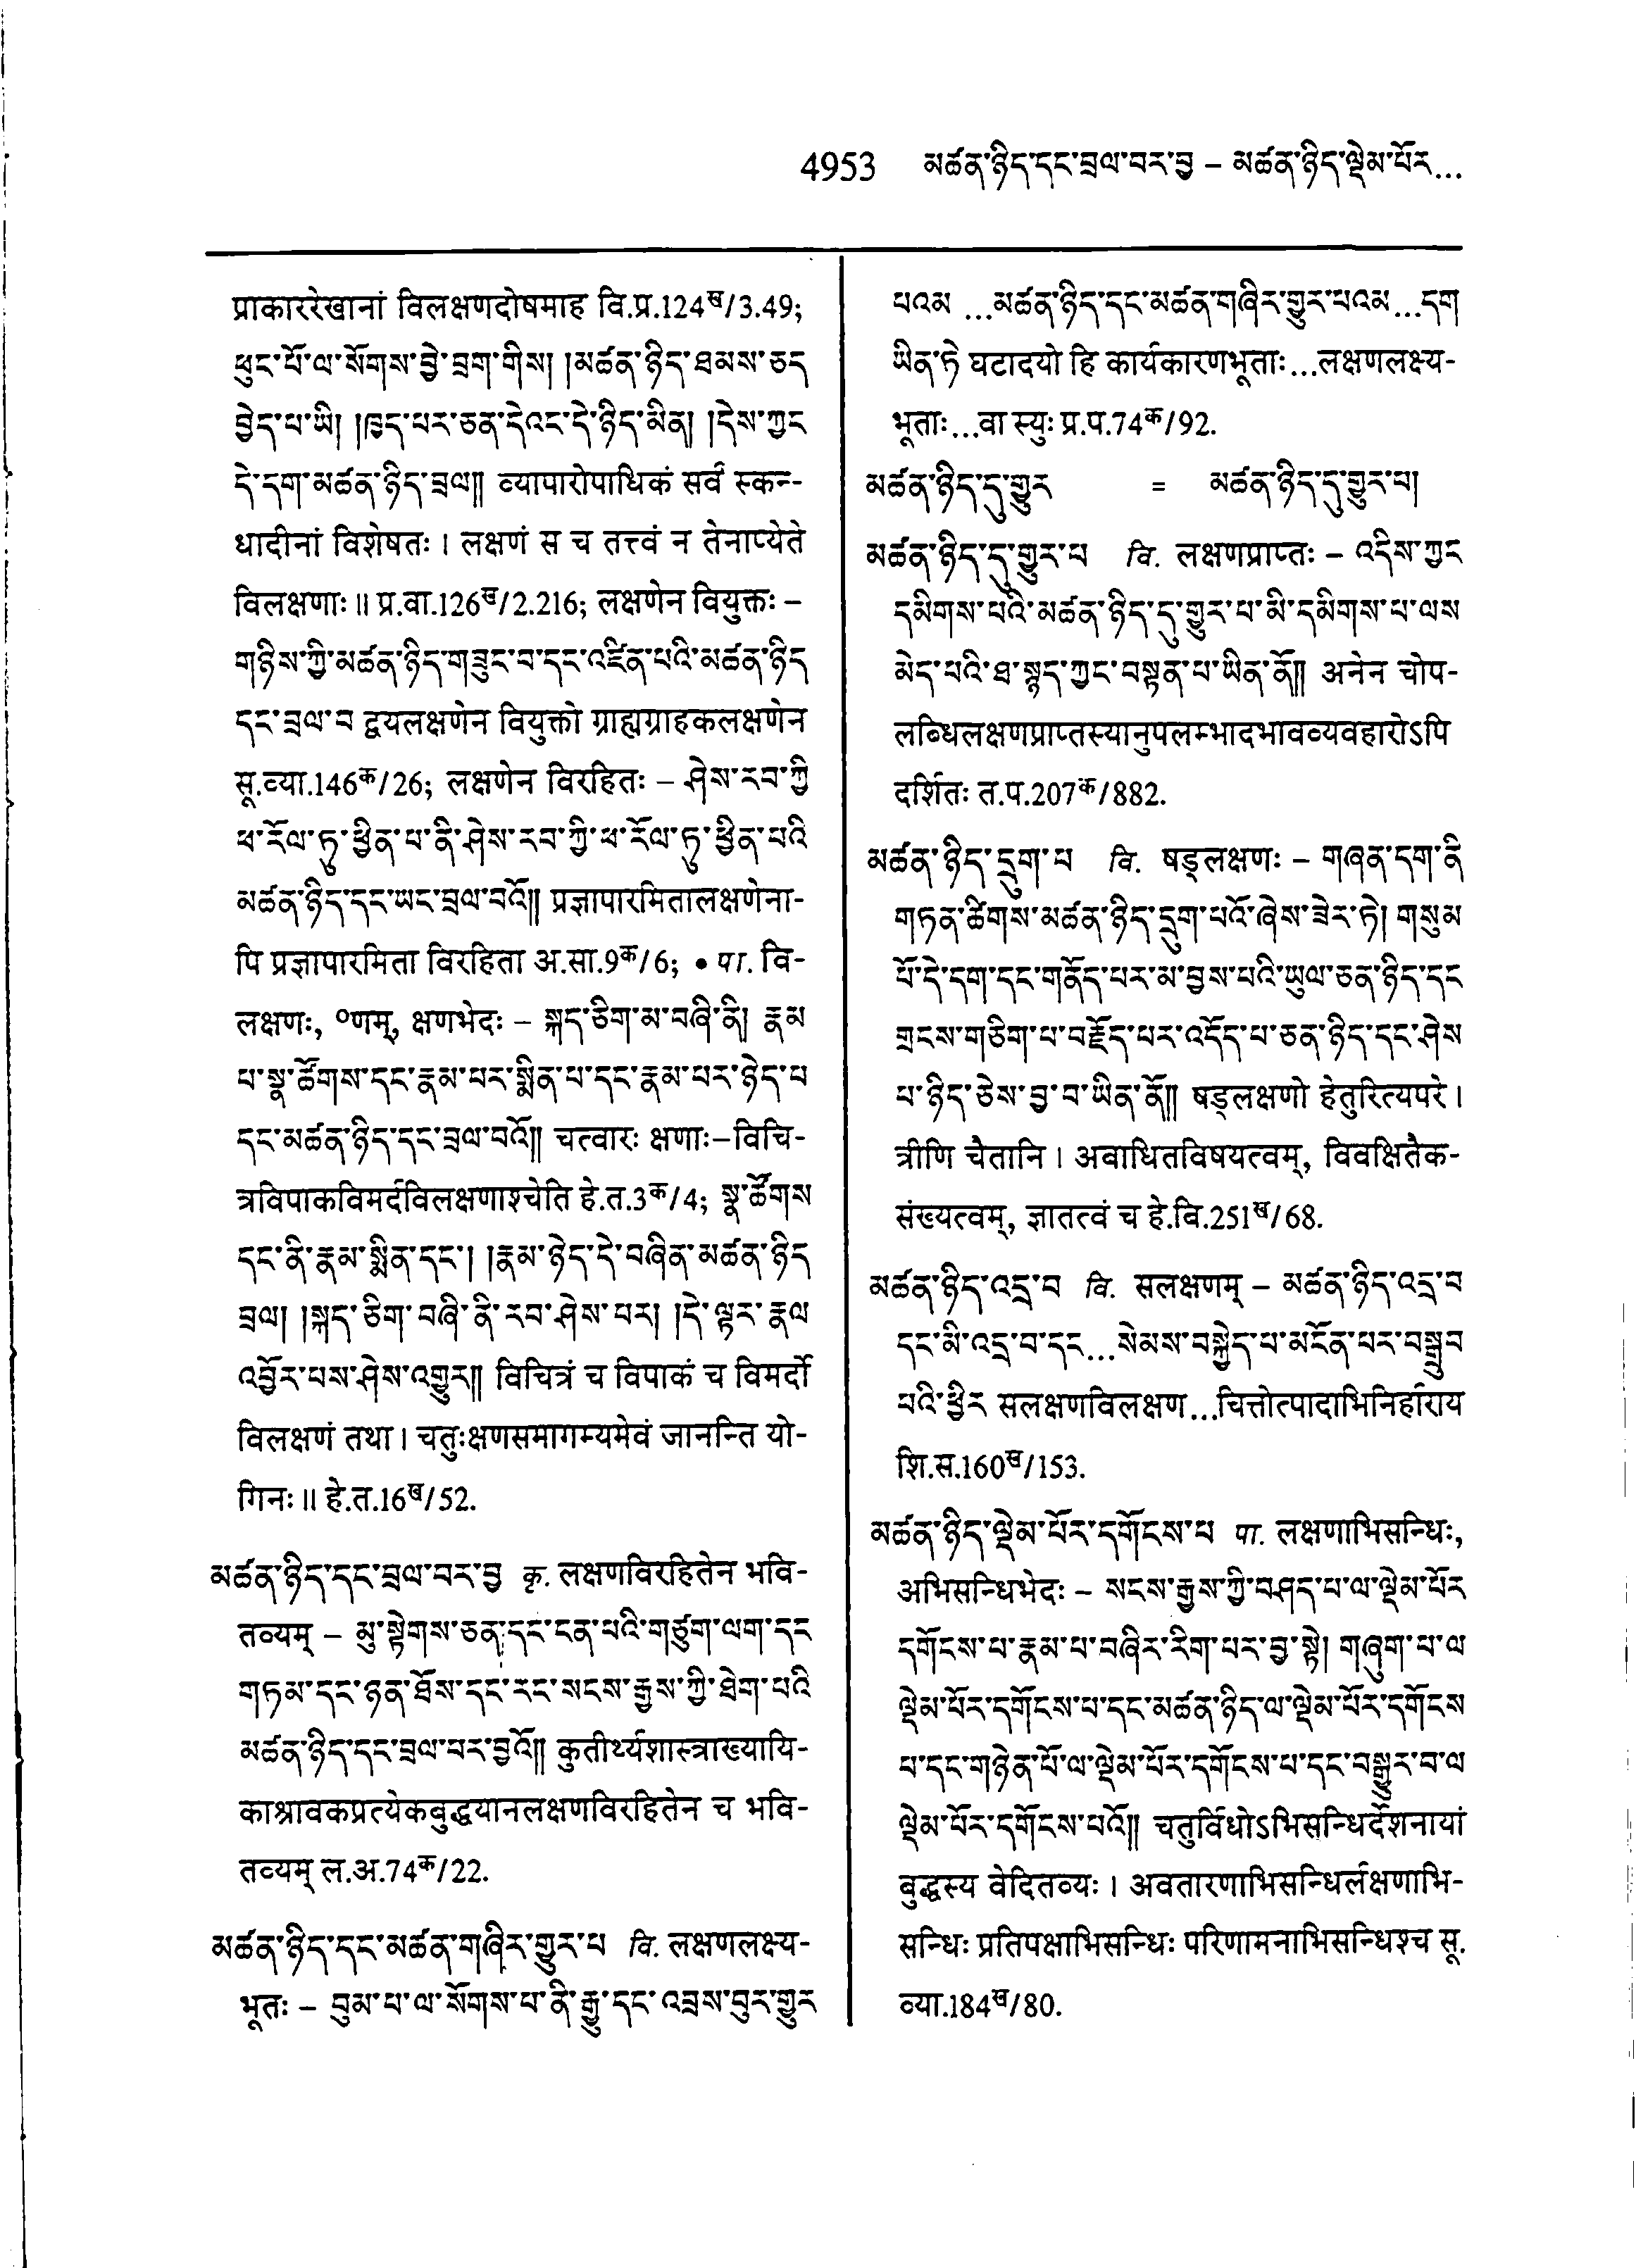 4953 མཚན་ཉིད་དང་བྲལ་བར་བྱ – མཚན་ཉིད་ལྡེམ་པོར...
प्राकाररेखानां विलक्षणदोषमाह वि.प्र.124ख/3.49;
ཕུང་པོ་ལ་སོགས་བྱེ་བྲག་གིས། །མཚན་ཉིད་ཐམས་ཅད
བྱེད་པ་ཡི། །ཁྱད་པར་ཅན་དེའང་དེ་ཉིད་མིན། །དེས་ཀྱང
དེ་དག་མཚན་ཉིད་བྲལ།། व्यापारोपाधिकं सर्वं स्कन्-
धादीनां विशेषतः । लक्षणं स च तत्त्वं न तेनाप्येते
विलक्षणाः ॥ प्र.वा.126ख/2.216; लक्षणेन वियुक्तः –
གཉིས་ཀྱི་མཚན་ཉིད་གཟུང་བ་དང་འཛིན་པའི་མཚན་ཉིད
དང་བྲལ་བ द्वयलक्षणेन वियुक्तो ग्राह्यग्राहकलक्षणेन
सू.व्या.146क/26; लक्षणेन विरहितः – ཤེས་རབ་ཀྱི
ཕ་རོལ་ཏུ་ཕྱིན་པ་ནི་ཤེས་རབ་ཀྱི་ཕ་རོལ་ཏུ་ཕྱིན་པའི
མཚན་ཉིད་དང་ཡང་བྲལ་བའོ།། प्रज्ञापारमितालक्षणेना-
पि प्रज्ञापारमिता विरहिता अ.सा.9क/6; • पा. वि-
लक्षणः, ०णम्, क्षणभेदः – སྐད་ཅིག་མ་བཞི་ནི། རྣམ
པ་སྣ་ཚོགས་དང་རྣམ་པར་སྨིན་པ་དང་རྣམ་པར་ཉེད་པ
དང་མཚན་ཉིད་དང་བྲལ་བའོ།། चत्वारः क्षणाः–विचि-
त्रविपाकविमर्दविलक्षणाश्चेति हे.त.3क/4; སྣ་ཚོགས
དང་ནི་རྣམ་སྨིན་དང་། །རྣམ་ཉེད་དེ་བཞིན་མཚན་ཉིད
བྲལ། །སྐད་ཅིག་བཞི་ནི་རབ་ཤེས་པར། །དེ་ལྟར་རྣལ
འབྱོར་པས་ཤེས་འགྱུར།། विचित्रं च विपाकं च विमर्दो
विलक्षणं तथा । चतुःक्षणसमागम्यमेवं जानन्ति यो-
गिनः ॥ हे.त.16ख/52.
མཚན་ཉིད་དང་བྲལ་བར་བྱ कृ. लक्षणविरहितेन भवि-
तव्यम् – མུ་སྟེགས་ཅན་དང་ངན་པའི་གཙུག་ལག་དང
གཏམ་དང་ཉན་ཐོས་དང་རང་སངས་རྒྱས་ཀྱི་ཐེག་པའི
མཚན་ཉིད་དང་བྲལ་པར་བྱའོ།། कुतीर्थ्यशास्त्राख्यायि-
काश्रावकप्रत्येकबुद्धयानलक्षणविरहितेन च भवि-
तव्यम् ल.अ.74क/22.
མཚན་ཉིད་དང་མཚན་གཞིར་གྱུར་པ वि. लक्षणलक्ष्य-
भूतः – བུམ་པ་ལ་སོགས་པ་ནི་རྒྱུ་དང་འབྲས་བུར་གྱུར
པའམ ...མཚན་ཉིད་དང་མཚན་གཞིར་གྱུར་པའམ...དག
ཡིན་ཏེ घटादयो हि कार्यकारणभूताः...लक्षणलक्ष्य-
भूताः...वा स्युः प्र.प.74क/92.
མཚན་ཉིད་དུ་གྱུར = མཚན་ཉིད་དུ་གྱུར་པ།
མཚན་ཉིད་དུ་གྱུར་པ वि. लक्षणप्राप्तः – འདིས་ཀྱང
དམིགས་པའི་མཚན་ཉིད་དུ་གྱུར་པ་མི་དམིགས་པ་ལས
མེད་པའི་ཐ་སྙད་ཀྱང་བསྟན་པ་ཡིན་ནོ།། अनेन चोप-
लब्धिलक्षणप्राप्तस्यानुपलम्भादभावव्यवहारोऽपि
दर्शितः त.प.207क/882.
མཚན་ཉིད་དྲུག་པ वि. षड्लक्षणः – གཞན་དག་ནི
གཏན་ཚིགས་མཚན་ཉིད་དྲུག་པའོ་ཞེས་ཟེར་ཏེ། གསུམ
པོ་དེ་དག་དང་གནོད་པར་མ་བྱས་པའི་ཡུལ་ཅན་ཉིད་དང
གྲངས་གཅིག་པ་བརྗོད་པར་འདོད་པ་ཅན་ཉིད་དང་ཤེས
པ་ཉིད་ཅེས་བྱ་བ་ཡིན་ནོ།། षड्लक्षणो हेतुरित्यपरे ।
त्रीणि चैतानि । अबाधितविषयत्वम्, विवक्षितैक-
संख्यत्वम्, ज्ञातत्वं च हे.वि.251ख/68.
མཚན་ཉིད་འདྲ་བ वि. सलक्षणम् – མཚན་ཉིད་འདྲ་བ
དང་མི་འདྲ་བ་དང...སེམས་བསྐྱེད་པ་མངོན་པར་བསྒྲུབ
པའི་ཕྱིར सलक्षणविलक्षण...चित्तोत्पादाभिनिर्हाराय
शि.स.160ख/153.
མཚན་ཉིད་ལྡེམ་པོར་དགོངས་པ पा. लक्षणाभिसन्धिः,
अभिसन्धिभेदः – སངས་རྒྱས་ཀྱི་བཤད་པ་ལ་ལྡེམ་པོར
དགོངས་པ་རྣམ་པ་བཞིར་རིག་པར་བྱ་སྟེ། གཞུག་པ་ལ
ལྡེམ་པོར་དགོངས་པ་དང་མཚན་ཉིད་ལ་ལྡེམ་པོར་དགོངས
པ་དང་གཉེན་པོ་ལ་ལྡེམ་པོར་དགོངས་པ་དང་བསྒྱུར་བ་ལ
ལྡེམ་པོར་དགོངས་པའོ།། चतुर्विधोऽभिसन्धिर्देशनायां
बुद्धस्य वेदितव्यः । अवतारणाभिसन्धिर्लक्षणाभि-
सन्धिः प्रतिपक्षाभिसन्धिः परिणामनाभिसन्धिश्च सू.
व्या.184ख/80.